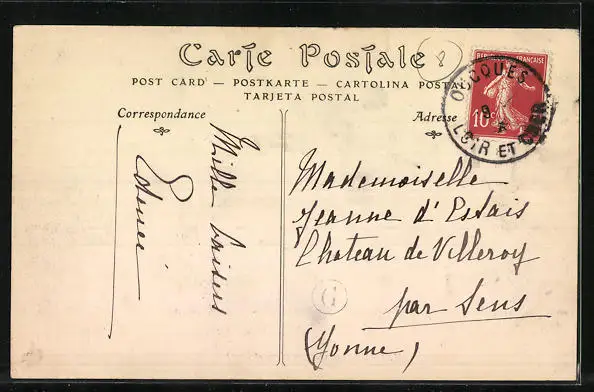 Carte Postale
8
POST CARD — POSTKARTE — CARTOLINA POSTAL
TARJETA POSTAL
Correspondance
Adresse
RÉPUBLIQUE FRANÇAISE
10c
OUCQUES
9
LOIR ET CHER
Mille baisers
Mademoiselle
Jeanne d'Essais
Chateau de Villeroy
par Sens
(Yonne)
G